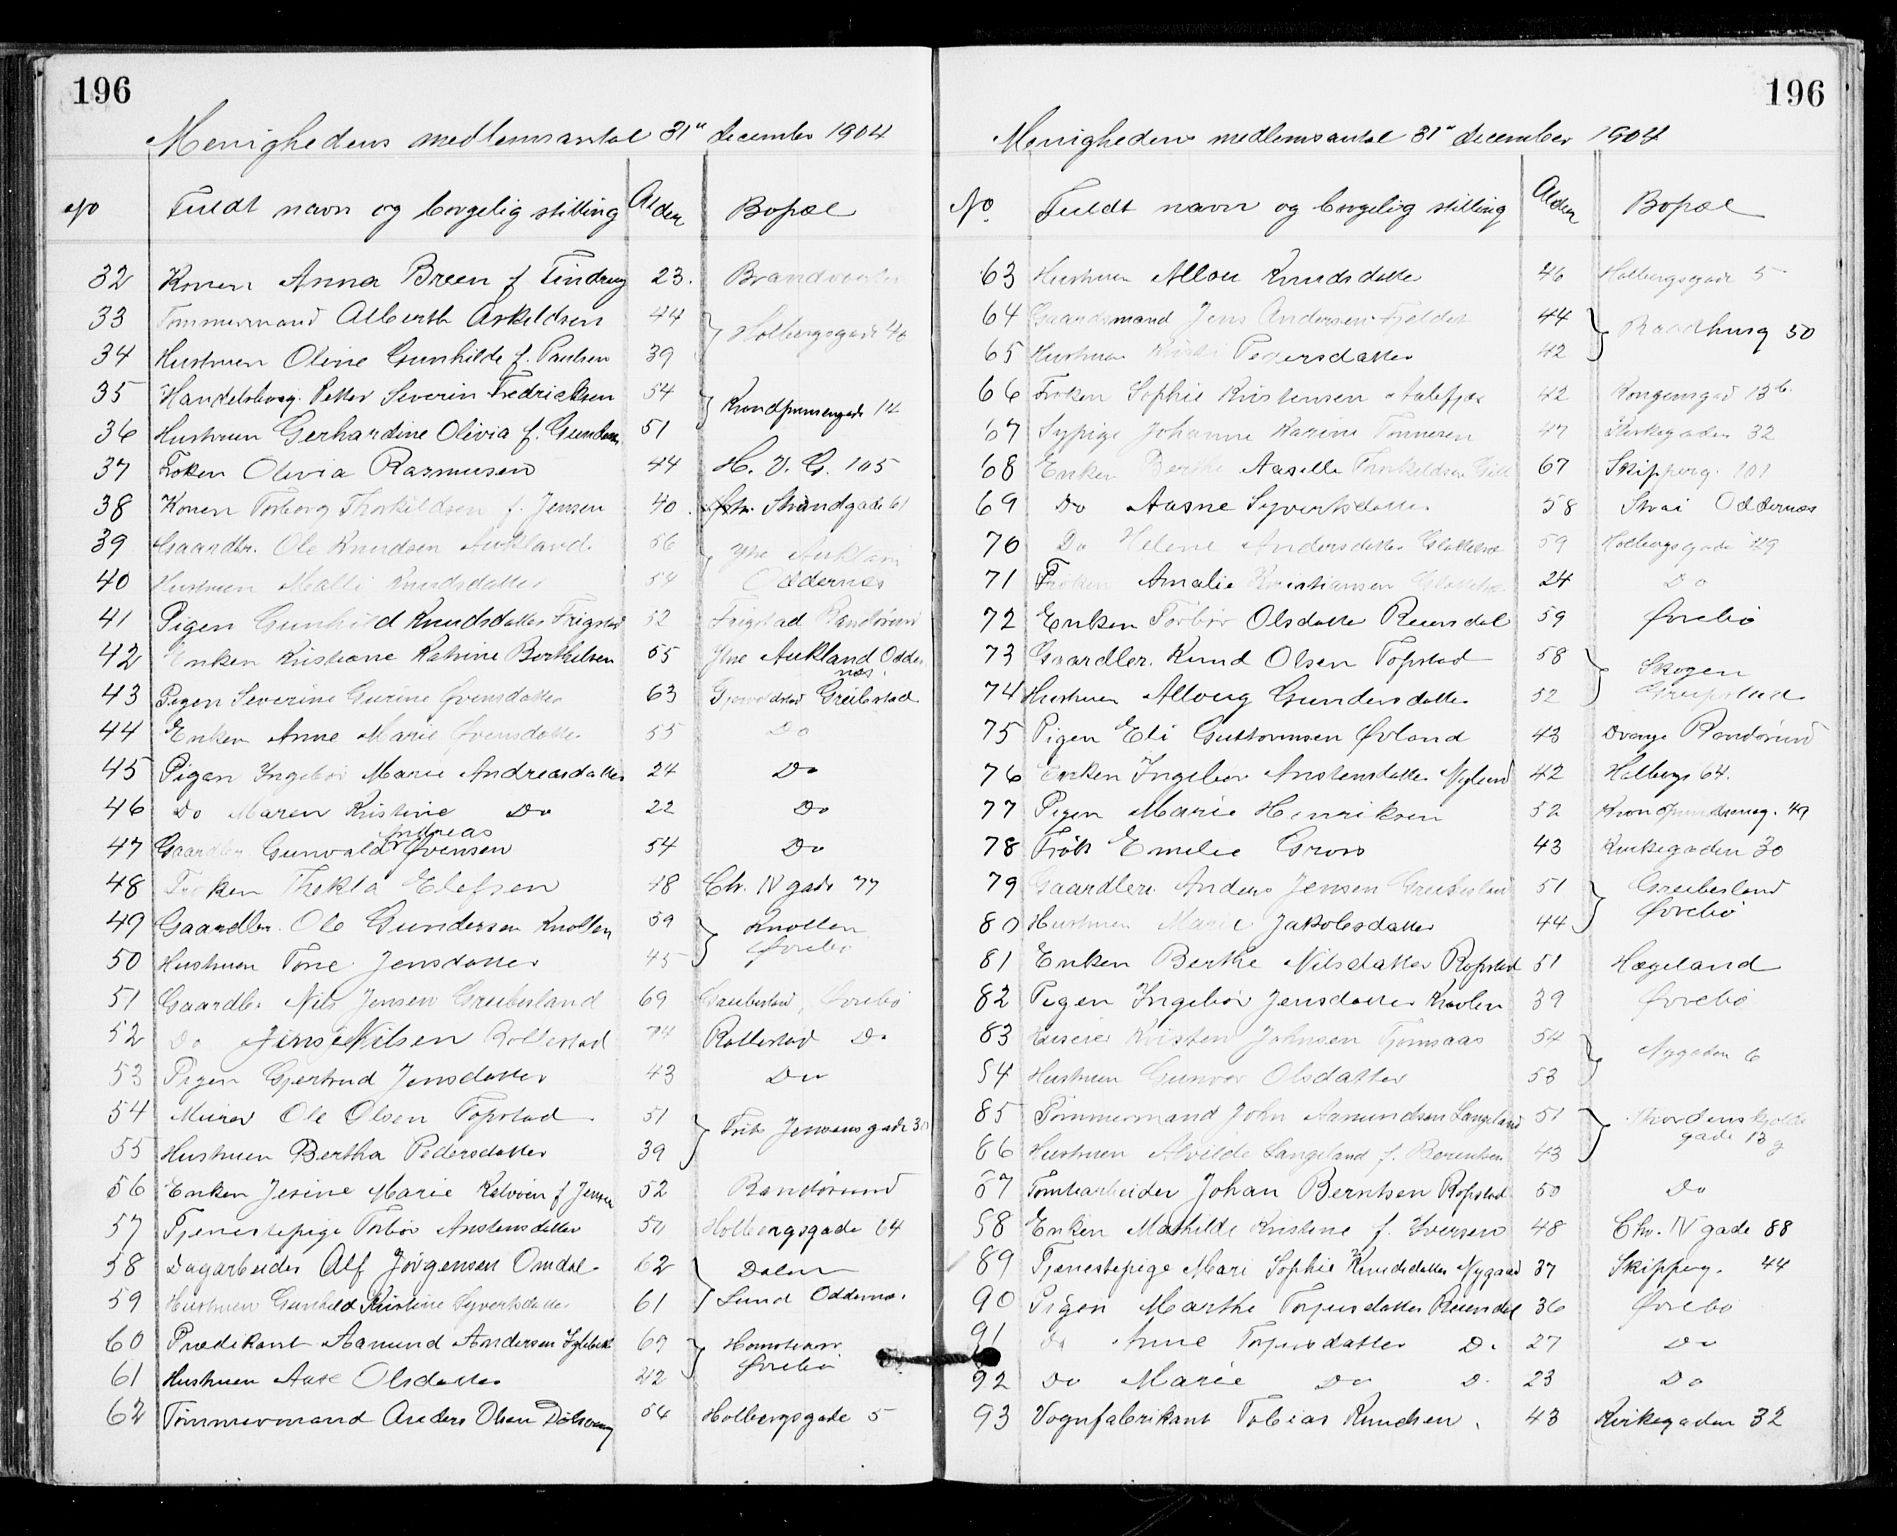 196
Menighedens medlemsantal 31te december 1904
No Fuldt navn og borgelig stilling Alder Bopæl
32 Konen Anna Breen f. Tindrug 23. Brandvagten
33 Tømmermand Alberth Askildsen 44 Holbergsgade 40
34 Hustruen Oline Gunhilde f. Paulsen 39
35 Handelsborg. Petter Severin Fredricksen 54 Krondprinsengade 14
36 Hustruen Gerhardine Olivia f. Gunders. 51
37 Frøken Olivia Rasmusen 44 H. V. G. 105
38 Konen Torborg Thorkildsen f. Jensen 40. Strandgade 61
39 Gaardbr. Ole Knudsen Aukland 56 Ytre Aukland
40 Hustruen Malli Knudsdatter 54 Oddernes
41 Pigen Gunhild Knudsdatter Frigstad 52 Frigstad Randøsund
42 Enken Kristiane Katrine Berthelsen 55 Ytre Aukland Oddernæs.
43 Pigen Severine Gurine Øvensdatter 63 Greibestad
44 Enken Anne Marie Øvensdatter 55 Do
45 Pigen Ingebor Marie Andreasdatter 24 Do
46 Do Maren Kristine Do 22 Do
47 Gaardbr. Gunvald Andreas Øvensen 54 Do
48 Frøken Thekla Elefsen 48 Chr. IV gade 77
49 Gaardbr. Ole Gundersen Knotten 59 Knotten
50 Hustruen Tone Jensdatter 45 Øvrebø
51 Gaardbr. Nils Jensen Greibesland 69 Øvrebø
52 Do Jens Nilsen Rollestad 74 Rollestad Do
53 Pigen Gjertrud Jensdatter 43 Do
54 Murer Ole Olsen Topstad 51 Frits Jensens gade 30
55 Hustruen Bertha Pedersdatter 39
56 Enken Jesine Marie Kalvøen f Jensen 52 Randøsund
57 Tjenestepige Torbor Anstensdatter 50 Holbergsgade 64
58 Dagarbeider Alf Jörgensen Omdal 62 Dalen
59 Hustruen Gunhild Kristine Syvertsdatter 61 Lund Oddernes.
60 Prædikant Aamund Andersen 69 Homstean
61 Hustruen Aase Olsdatter 42 Øvrebø
62 Tømmermand Anders Olsen 54 Holbergsgade 5
196
Menighedens medlemsantal 31te december 1904
No. Fuldt navn og borgelig stilling Alder Bopæl
63 Hustruen Allou Knudsdatter 46 Holbergsgade 5
64 Gaardsmand Jens Andersen Fjeldet 44 Raadhusg 50
65 Hustruen Kirsti Pedersdatter 42
66 Frøken Sophie Kristensen Aalefjær 42 Kongensgad 13b.
67 Sypige Johanne Karine Tønnesen 47 Kirkegaden 32
68 Enken Berthe Aaselle Thorkildsen 67 Skipperg. 101
69 Do Aasne Syvertsdatter 58 Strai Oddernæs
70 Do Helene Andersdatter 59 Holbergsgade 49
71 Frøken Amalie Kristiansen 24 Do
72 Enken Torbor Olsdatter Reiersdal 59 Øvrebø
73 Gaardbr. Knud Olsen Topstad 58 Skogen
74 Hustruen Allovg Gundersdatter 52 Greipstad
75 Pigen Eli Guttormsen Øvland 43 Dvergs Randøsund
76 Enken Ingebor Anstensdatter Vegland 42 Holbergs 64.
77 Pigen Marie Henriksen 52 Krondprindseng. 49
78 Frøk Emelie Gross 43 Kirkegaden 30
79 Gaardbr. Anders Jensen Greibesland 51 Greibesland
80 Hustruen Marie Jakobsdatter 44 Øvrebø
81 Enken Berthe Nilsdatter Ropstad 51 Hægeland
82 Pigen Ingebor Jensdatter 39 Øvrebø
83 Kristen Johnsen Tjomsaas 54 Nygaden 6
84 Hustruen Gunvor Olsdatter 53
85 Tømmermand John Asmundsen Langeland 51 Thordenskjolds
86 Hustruen Alvilde Langeland f. Berentsen 43 gade 13 g
87 Tomtearbeider Johan Berntsen Ropstad 50 Do
88 Enken Mathilde Kristine f. Iversen 48 Chr. IV gade 88
89 Tjenestepige Mari Sophie Knudsdatter Nygaard 37 Skipperg. 44
90 Pigen Marthe Torjusdatter Reiersdal 36 Øvrebø
91 Do Anne Torjusdatter Do 27 Do
92 Do Marie Do Do 23 Do
93 Vognfabrikant Tobias Knudsen. 43 Kirkegaden 32